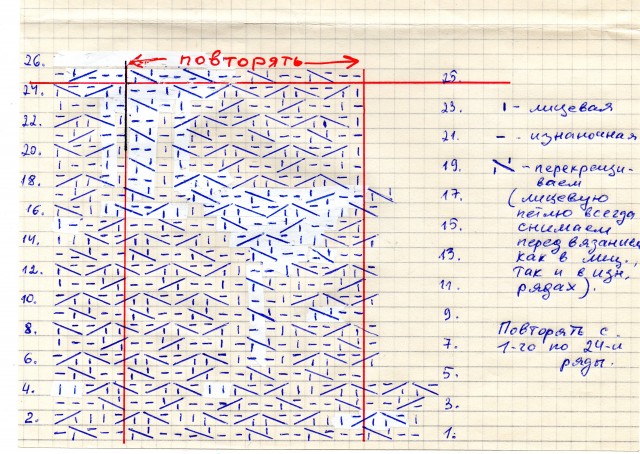 повторять
26.
24.
22.
20.
18.
16.
14.
12.
10.
8.
6.
4.
2.
25.
23.
21.
19.
17.
15.
13.
11.
9.
7.
5.
3.
1.
ı - лицевая
- - изнаночная
- перекрещи-
ваем
(лицевую
петлю всегда
снимаем
перед вязанием
как в лиц.,
так и в изн.
рядах).
Повторять с
1-го по 24-й
ряды.